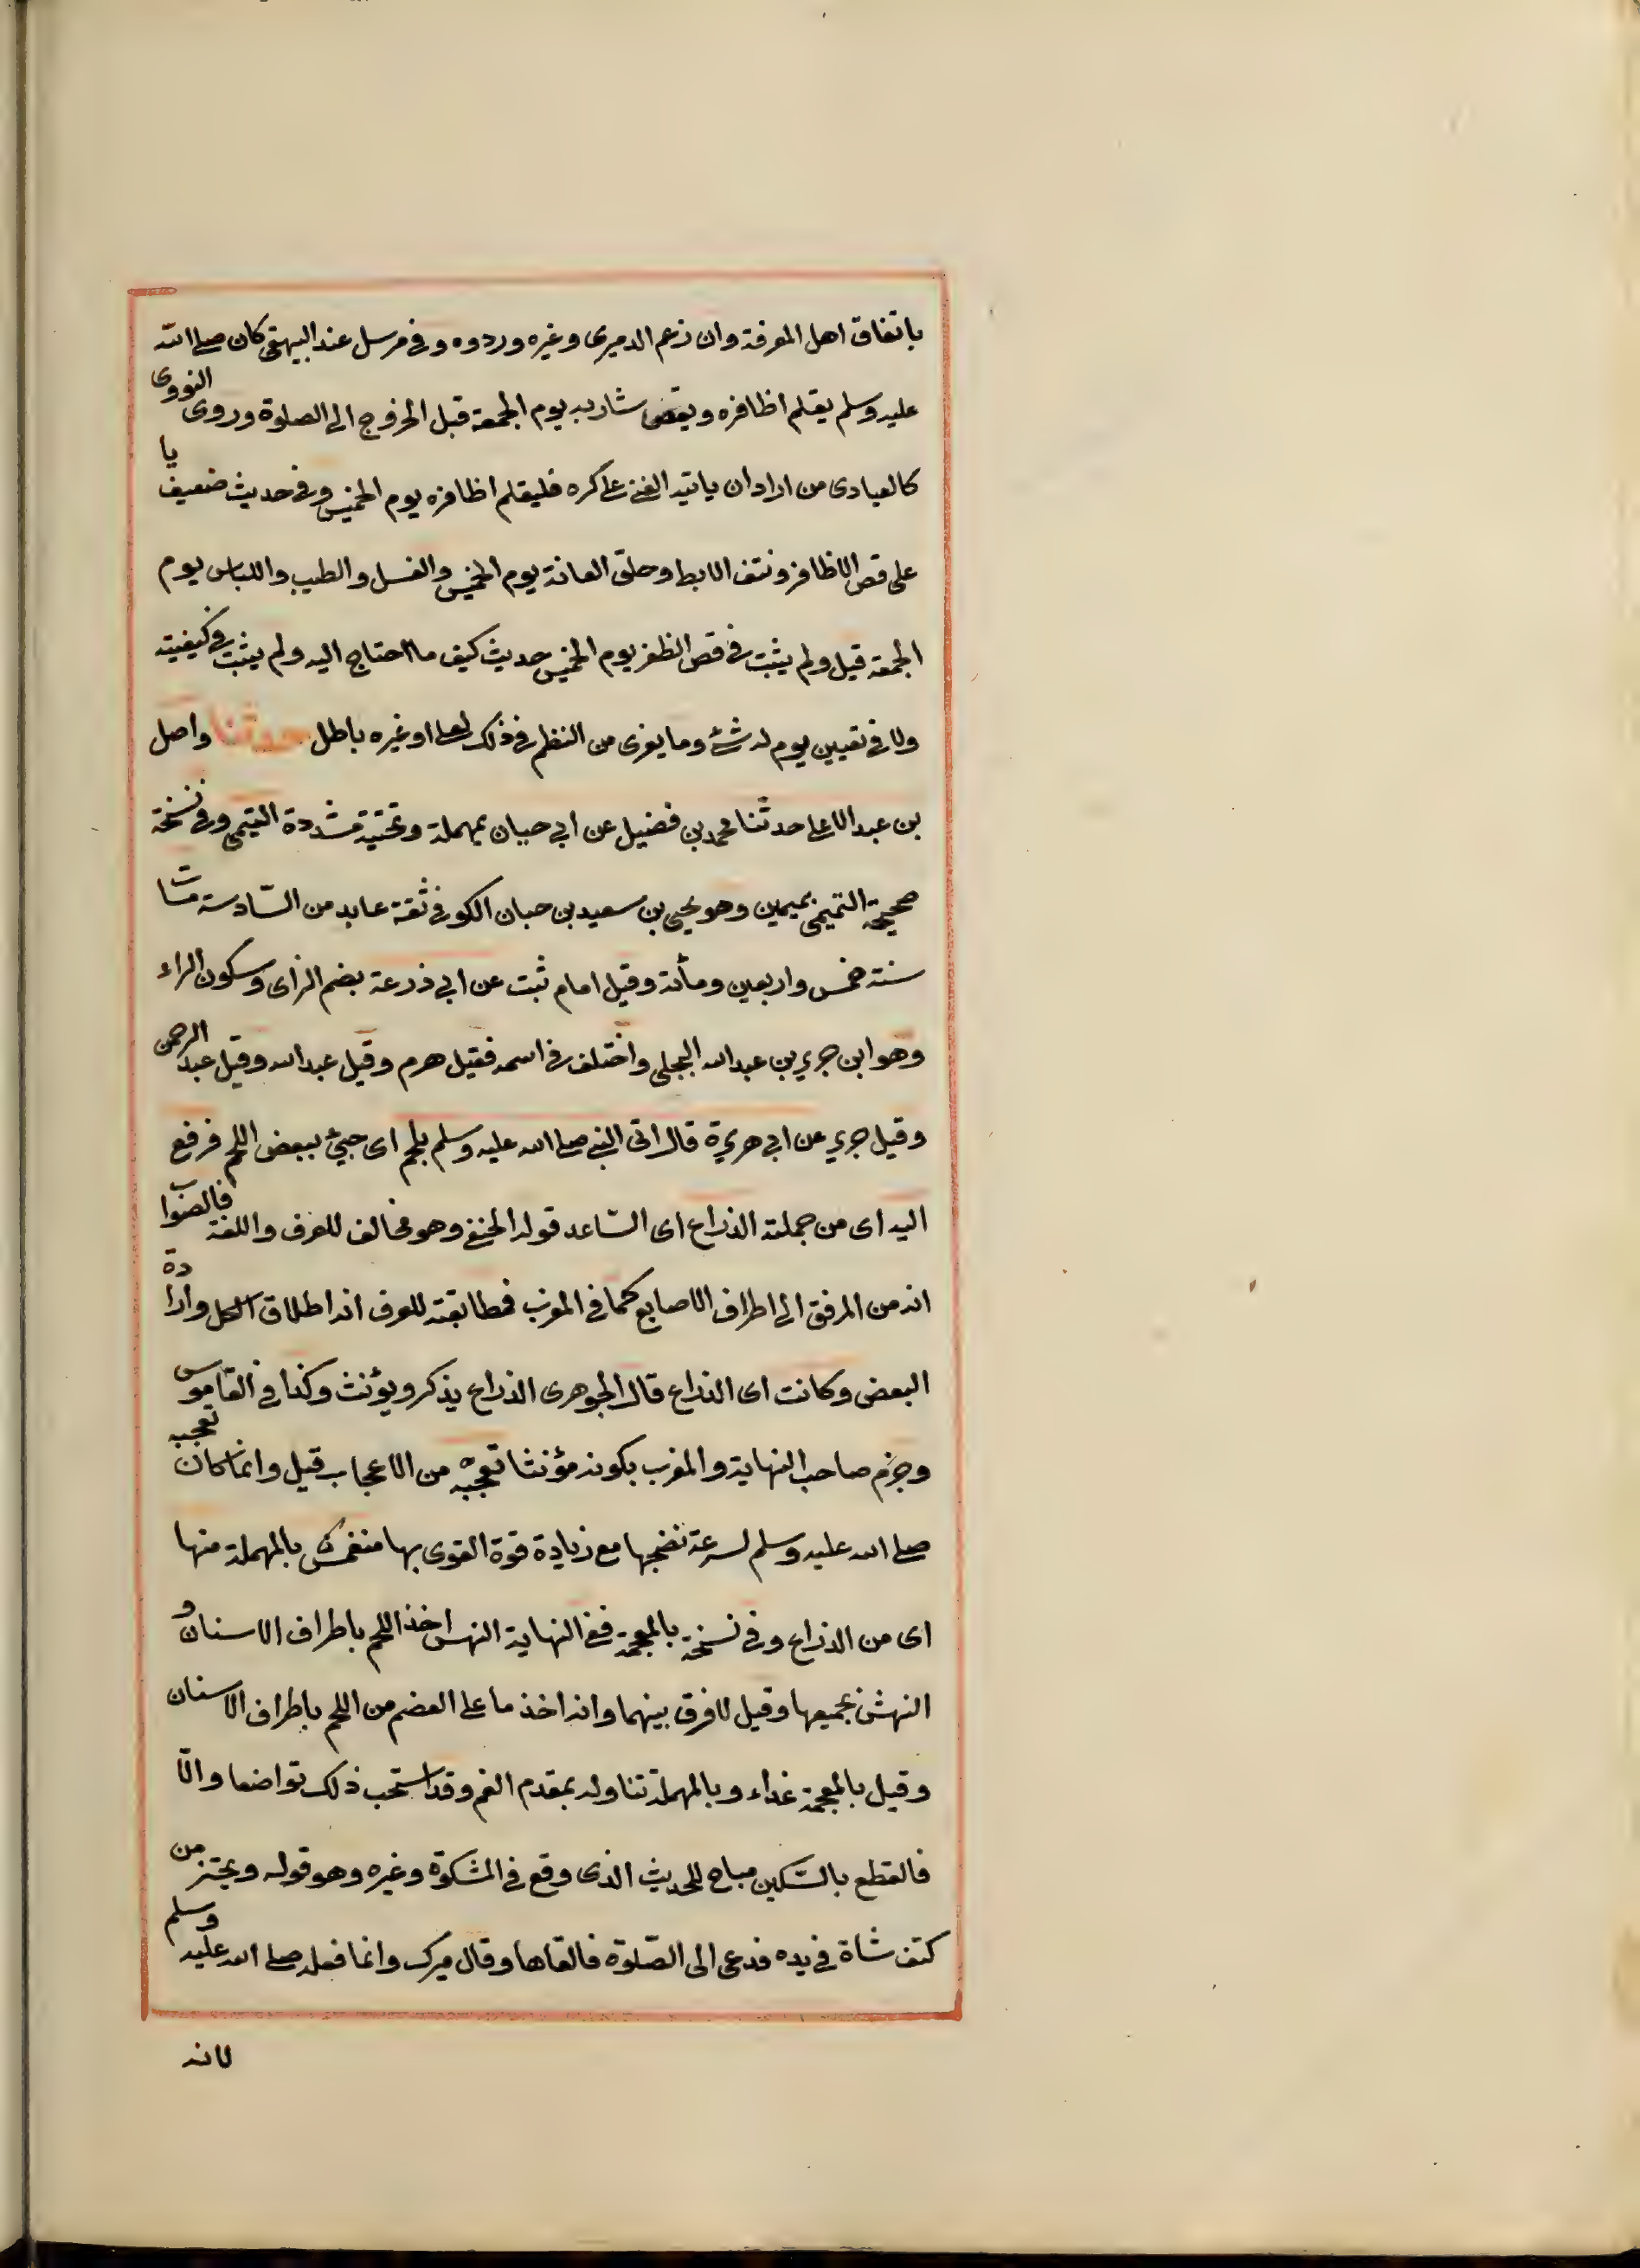 باتفاق اهل المعرفة وان زعم الدميرى وغيره وردوه وفى مرسل عند البيهقى كان صلى الله
عليه وسلم يقلم اظافره ويقص شاربه يوم الجمعة قبل الخروج الى الصلوة وروى النووى
كالعبادى من اراد ان ياتيه الغنى على كره فليقلم اظافره يوم الخميس وفى حديث ضعيف يا
على قص الاظافر ونتف الابط وحلق العانة يوم الخميس والغسل والطيب واللباس يوم
الجمعة قيل ولم يثبت فى قص الظفر يوم الخميس حديث كيف ما احتاج اليه ولم يثبت فى كيفيته
ولا فى تعيين يوم له شئ وما يعزى من النظم فى ذلك لعلى او غيره باطل حدثنا واصل
بن عبد الاعلى حدثنا محمد بن فضيل عن ابى حيان بمهملة وتحتية مشددة التيمى وفى نسخة
صحيحة التميمى بميمين وهو يحيى بن سعيد بن حيان الكوفى ثقة عابد من السّادسة مات
سنة خمس واربعين ومأئة وقيل امام ثبت عن ابى زرعة بضم الزاى وسكون الراء
وهو ابن جرير بن عبد الله البجلى واختلف فى اسمه فقيل هرم وقيل عبد الله وقيل عبد الرحمن
وقيل جرير عن ابى هريرة قال اتى النبى صلى الله عليه وسلم بلحم اى جيئ ببعض اللحم فرفع
اليه اى من جملته الذراع اى السّاعد قوله الحنفى وهو مخالف للعرف واللغة فالصواب
انه من المرفق الى اطراف الاصابع كما فى المغرب فمطابقته للعرف انه اطلاق الكل وارادة
البعض وكانت اى الذراع قال الجوهرى الذراع يذكر ويؤنث وكذا فى القاموس
وجزم صاحب النهاية والمغرب بكونه مؤنثا تعجبه من الاعجاب قيل وانما كان تعجبه
صلى الله عليه وسلم لسرعة نضجها مع زيادة قوة القوى بها فنهس بالمهملة منها
اى من الذراع وفى نسخة بالمعجمة ففى النهاية النهس اخذ اللحم باطراف الاسنان و
النهش بجميعها وقيل لا فرق بينهما وانه اخذ ما على العضم من اللحم باطراف الاسنان
وقيل بالمعجمة غداء وبالمهملة تناوله بمقدم الفم وقد استحب ذلك تواضعا والّا
فالقطع بالسّكين مباح للحديث الذى وقع فى المشكوة وغيره وهو قوله ويحتز من
كتف شاة فى يده فدعى الى الصّلوة فالقاها وقال ميرك وانما فعله صلى الله عليه وسلم
لانه